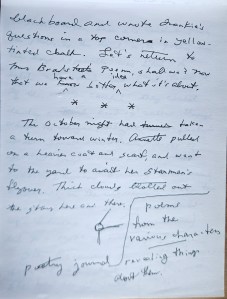 blackboard and wrote Frankie's
questions in a top corner in yellow-
tinted chalk. Let's return to
Poem, shall we now
that we have a better idea what it's about.
* * *
The October night had taken
a turn toward winter. pulled
on a heavier coat and scarf, and went
to the yard to await her Starmen's
flyover. Thick clouds blotted out
the stars here and there.
poems
from the
various characters
revealing things
about them.
poetry journal